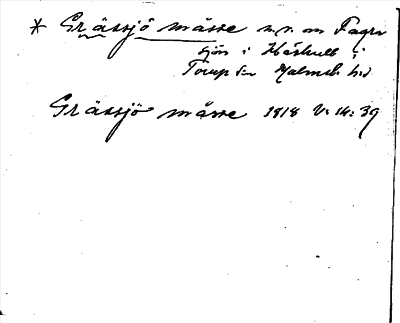 * Grässjö måsse n.v. om Fagra
sjön i Håshult i
Torup sn Halmst. hd
Grässjö måsse 1818 V: 14: 39